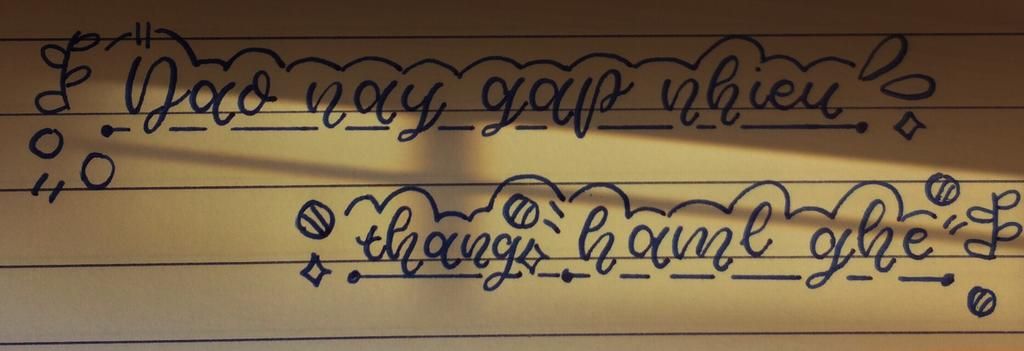 Dao nay gap nhieu
thang haml ghe